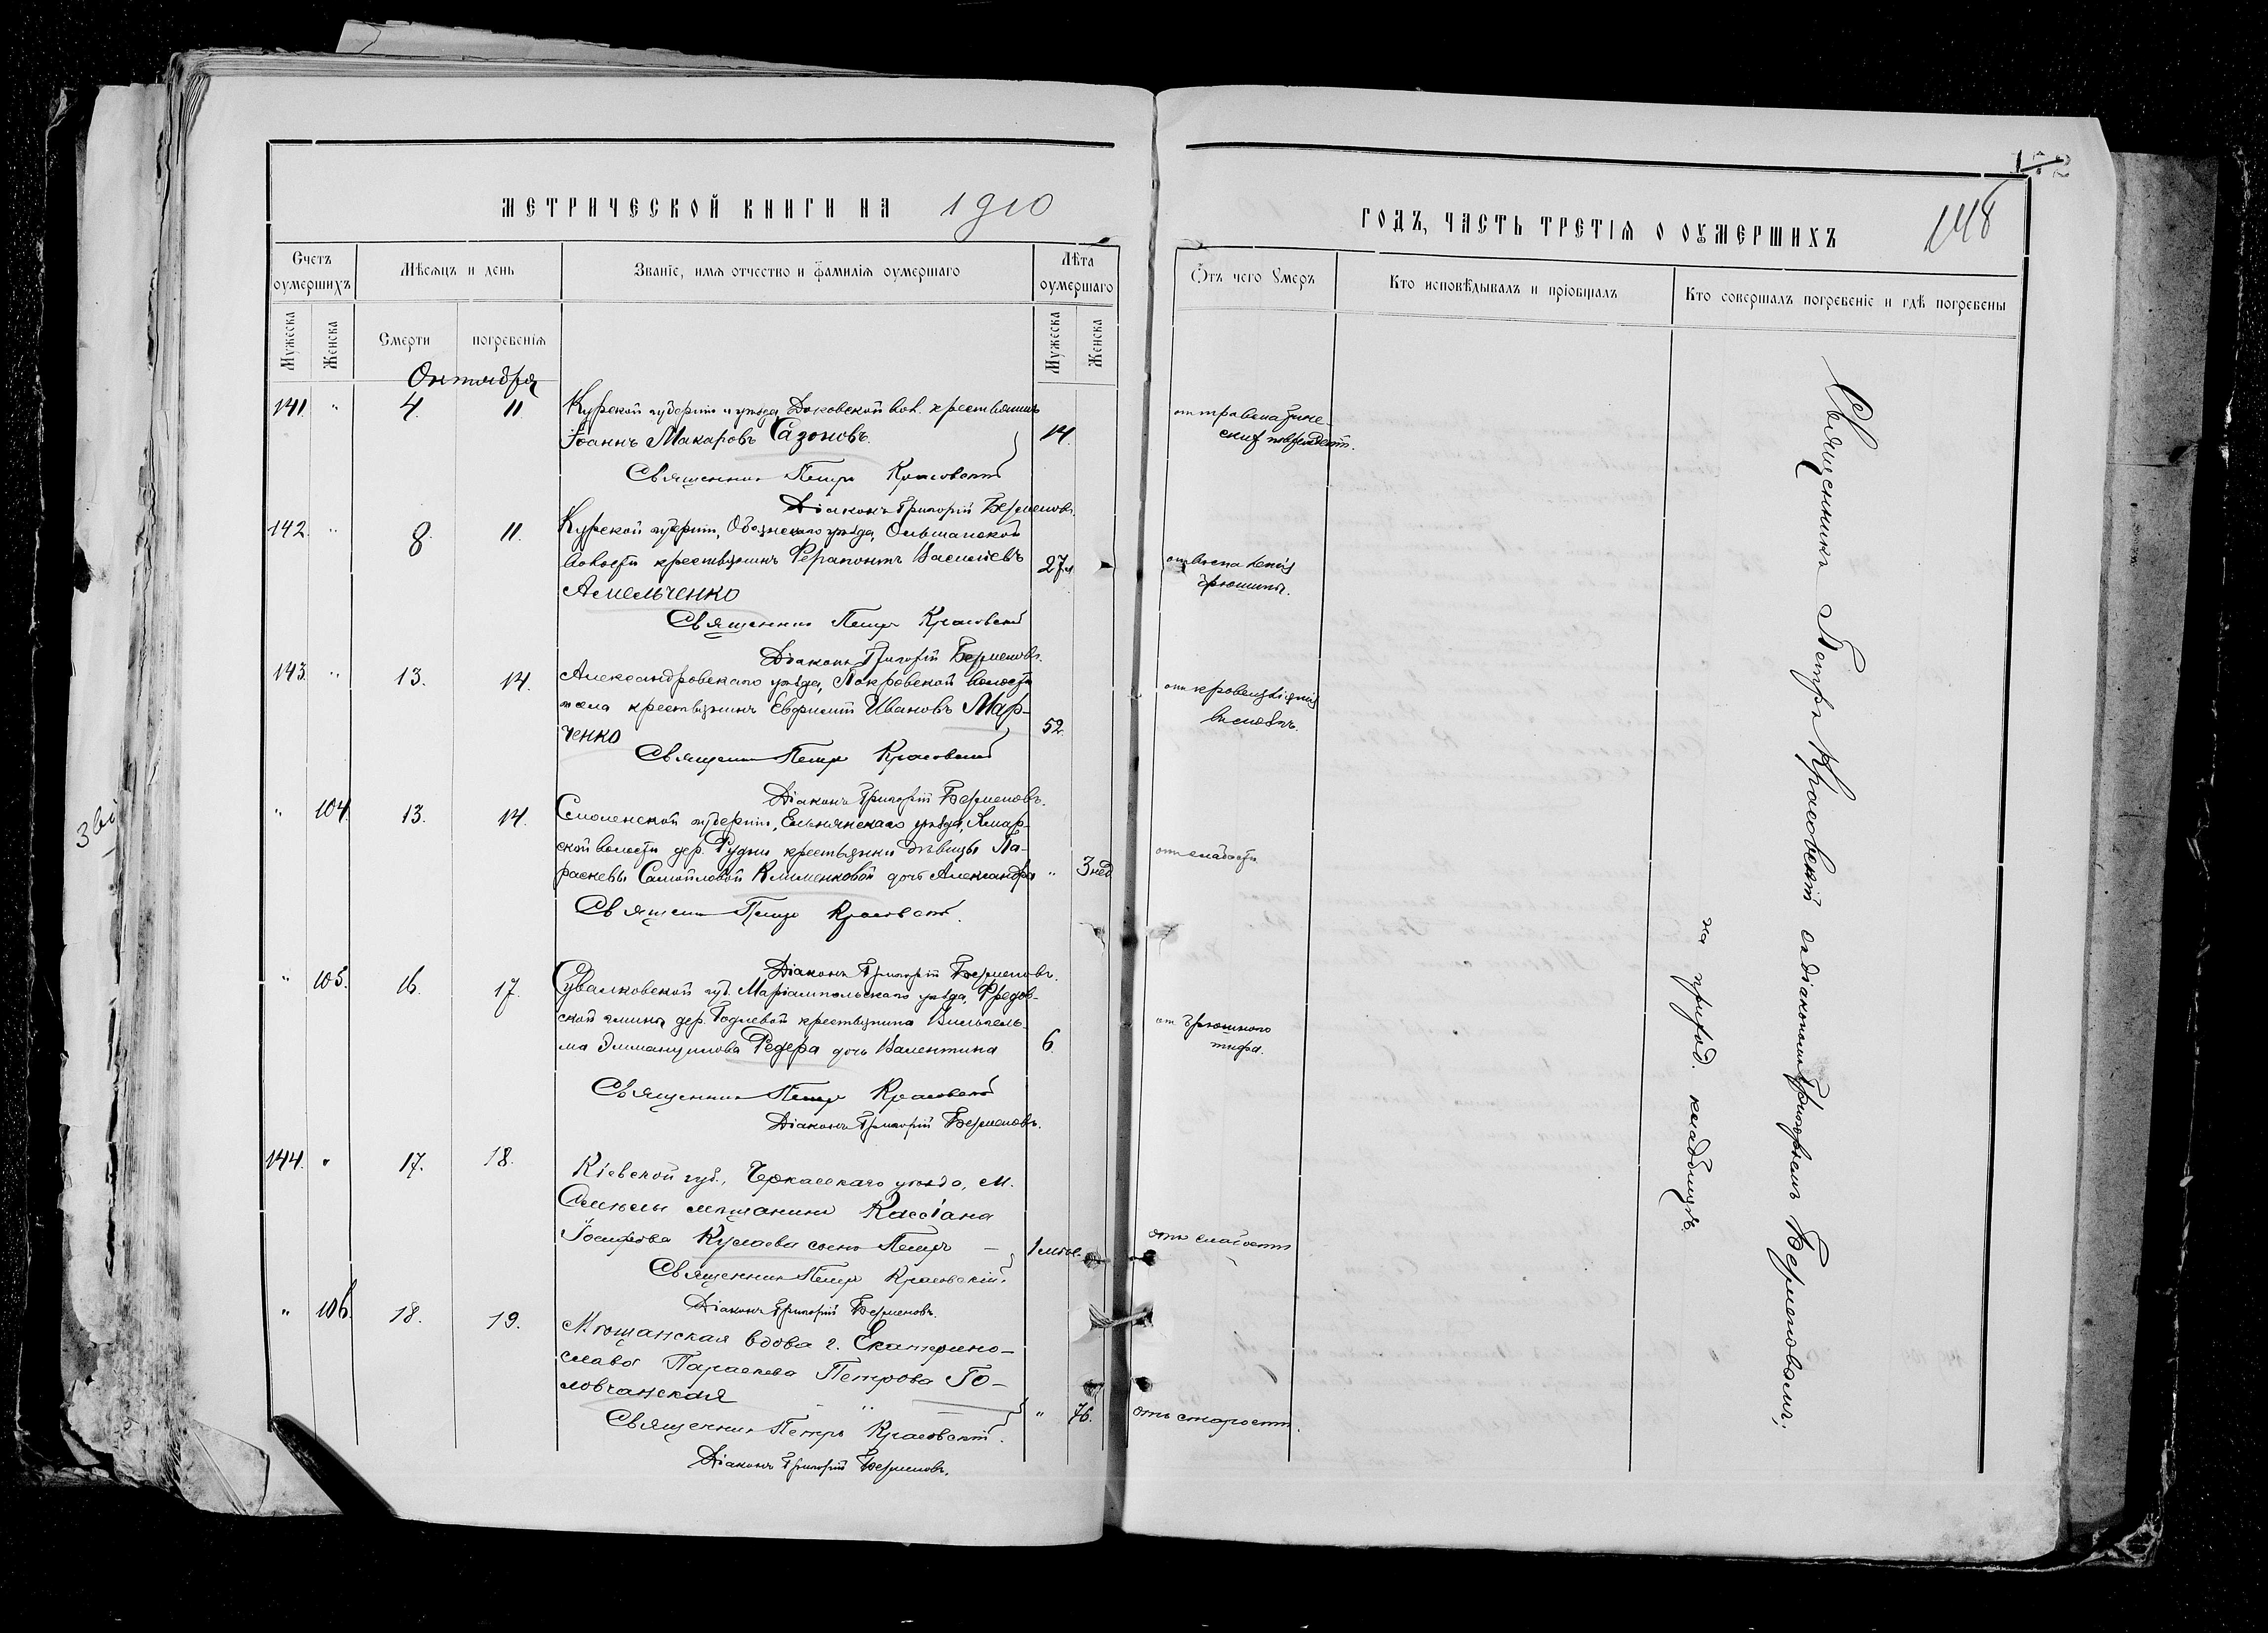 МЕТРИЧЕСКОЙ КНИГИ НА 1910
Счетъ оумершихъ
Мѣсяцъ и день
Званіе, имя отчество и фамилія оумершаго
Лѣта оумершаго
Мужеска
Женска
Смерти
погребенія
Мужеска
Женска
Октября
141 " 4. 11. Курской губерніи и уѣзда, вол. крестьянинъ
Іоаннъ Макаровъ Сазоновъ. 14.
Священникъ Петръ Красовскій
Діаконъ Григорій Берменовъ.
142. " 8. 11. Курской губерніи, Обоянскаго уѣзда, Ольшанской
волости крестьянинъ Ферапонтъ Васильевъ 27 л.
Амельченко
Священникъ Петръ Красовскій
Діаконъ Григорій Берменовъ.
143. " 13. 14. Александровскаго уѣзда, Покровской волости
и села крестьянинъ Евфимій Ивановъ Мар-
ченко 52.
Священникъ Петръ Красовскій
Діаконъ Григорій Берменовъ.
" 104. 13. 14. Смоленской губерніи, Ельнинскаго уѣзда,
ской волости дер. Рудни крестьянки дѣвицы Па-
раскевы Самойловой Клименковой дочь Александра " 3 нед
Священникъ Петръ Красовскій.
Діаконъ Григорій Берменовъ.
" 105. 16. 17. Сувалковской губ. Маріампольскаго уѣзда, Фредов-
ской гмины, дер. Годлевой крестьянина Вильгель-
ма Эммануилова Редера дочь Валентина 6.
Священникъ Петръ Красовскій
Діаконъ Григорій Берменовъ.
144. " 17. 18. Кіевской губ., Черкасскаго уѣзда, м.
Смѣлы мѣщанина Кассіана
Іосифова сынъ Петръ — 1 мѣс.
Священникъ Петръ Красовскій.
Діаконъ Григорій Берменовъ.
" 106. 18. 19. Мѣщанская вдова г. Екатерино-
слава Параскева Петрова Го-
ловчанская " 76.
Священникъ Петръ Красовскій.
Діаконъ Григорій Берменовъ.
ГОДЪ, ЧАСТЬ ТРЕТІЯ О ОУМЕРШИХЪ
148
Отъ чего умеръ
Кто исповѣдывалъ и пріобщалъ
Кто совершалъ погребеніе и гдѣ погребены
от травматиче-
ских поврежденій.
от воспаленія
брюшины.
от кровоизліянія
въ мозгъ.
от слабости
от брюшного
тифа.
отъ слабости
отъ старости.
Священникъ Петръ Красовскій съ діакономъ Григоріемъ Берменовымъ,
на приход. кладбищѣ.